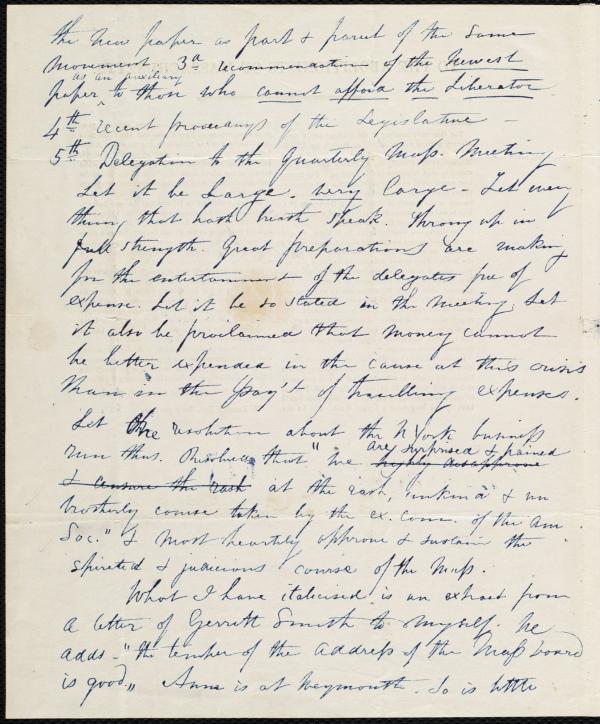 the new paper as part & parcel of the same
movement 3d recommendation of the newest
as an auxiliary
paper ^ to those who cannot afford the Liberator
4th recent proceedings of the Legislature –
5th Delegation to the Quarterly Mass. Meeting
Let it be Large, very large – Let every
thing that hath breath speak. Throng up in
full strength. Great preparations are making
for the entertainment of the delegates free of
expense. Let it be so stated in the meeting. Let
it also be proclaimed that money cannot
be better expended in the cause at this crisis
than in the pay't of travelling expenses.
Let the resolution about the N York business
are surprised & pained
run thus. Resolved that "we highly disapprove
& censure the rash at the rash, unkind & un
brotherly course taken by the ex. com. of the Am
Soc." & most heartily approve & sustain the
spirited & judicious course of the Mass.
What I have italicised is an extract from
a letter of Gerritt Smith to myself. he
adds – "the temper of the address of the Mass board
is good" Anne is at Weymouth. So is little